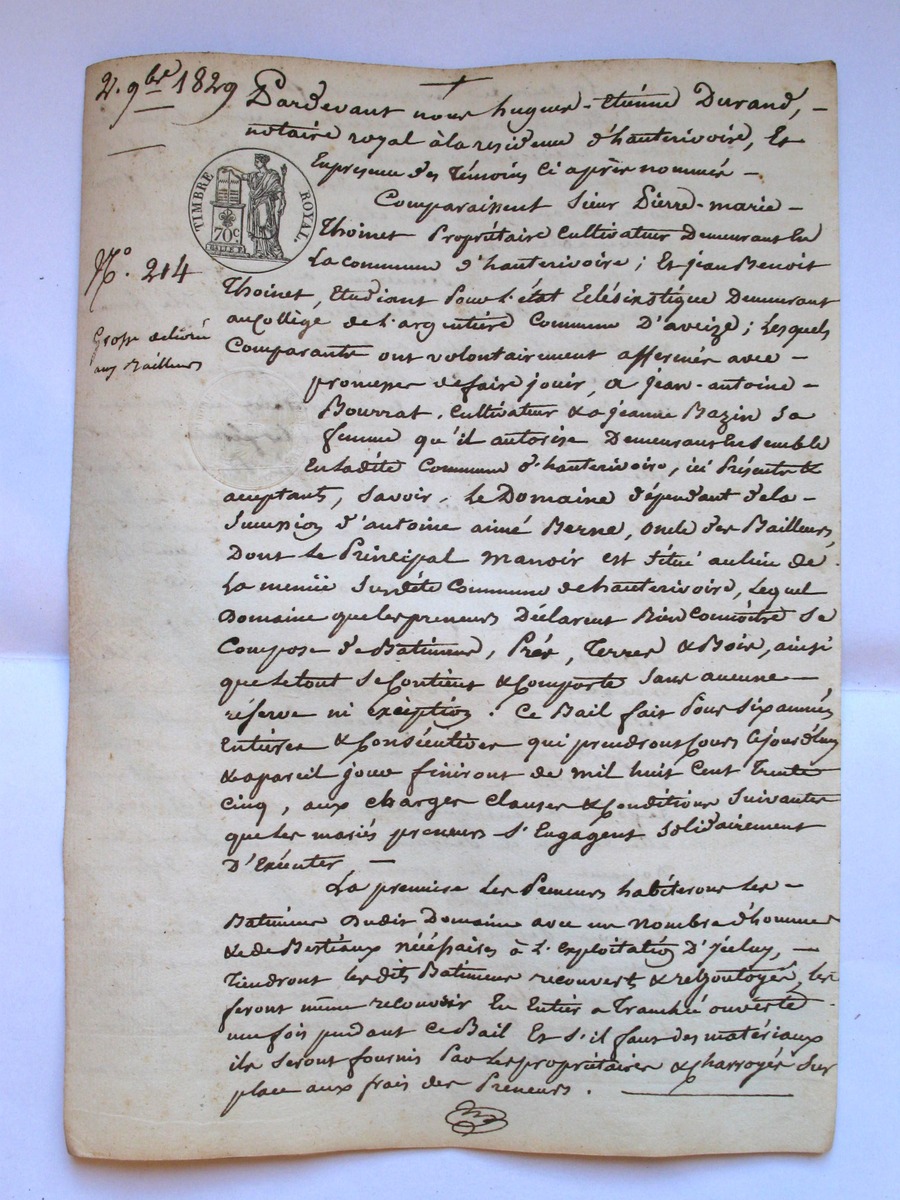 2. 9bre 1829
TIMBRE ROYAL
70c
No. 214
Grosse délivrée
aux Bailleurs
Pardevant nous hugues-Etienne Durand, -
notaire royal à la residence d'hauterivoire, Et
En presence des Témoins Ci après nommés -
Comparaissent Sieur Pierre-marie -
Thoinet Propriétaire Cultivateur Demeurant En
La commune d'hauterivoire ; Et jean Benoit
Thoinet, Etudiant Pour L'état Eclésiastique Demeurant
au Collège de L'argentière Commune D'aveize ; Lesquels
Comparants ont volontairement affermés avec -
promesses de faire jouir, a jean-antoine -
Bourrat, Cultivateur & a jeanne Bazin Sa
femme qu'il autorise Demeurant Ensemble
En Ladite Commune d'hauterivoire, ici Présents &
acceptants, Savoir, Le Domaine dépendant de la -
Succession d'antoine aimé Berne, oncle des Bailleurs,
Dont Le Principal manoir est Situé au lieu de
La menüe Susdite Commune de hauterivoire, Lequel
Domaine que les preneurs Déclarent Bien Connoître Se
Compose de Batiments, Prés, Terres & Bois, ainsi
que Le tout Se Contient & Comporte Sans aucune -
réserve ni exception. Ce Bail fait Pour Six années
Entières & Consécutives qui prendront Cours Cejourd'huy
& a pareil jour finiront de mil huit Cent Trente
Cinq, aux charges Clauses & Conditions Suivantes
que Les mariés preneurs S'Engagent Solidairement
D'Exécuter, -
La premiere Les Preneurs habiteront Les -
Batiments Dudit Domaine avec un nombre d'hommes
& de Bestiaux nécéssaires à L'exploitation D'Iceluy, -
Tiendront Lesdits Batiments recouverts & reboutoyés, Les
feront même recouvrir En Entier a Tranché ouverte
une fois pendant Ce Bail Et S'il faut des matériaux
ils Seront fournis Par Les propriétaires & charroyés Sur
place aux frais des Preneurs.